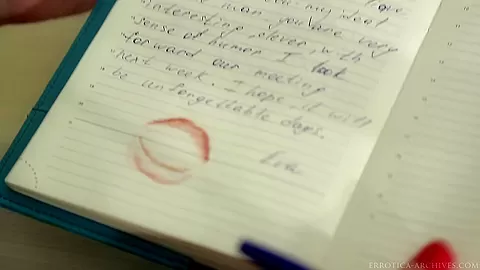 my dear
man, you are very
interesting, clever, with
sense of humor. I look
forward our meeting
next week. I hope, it will
be unforgettable days.
Eva
ERROTICA-ARCHIVES.COM